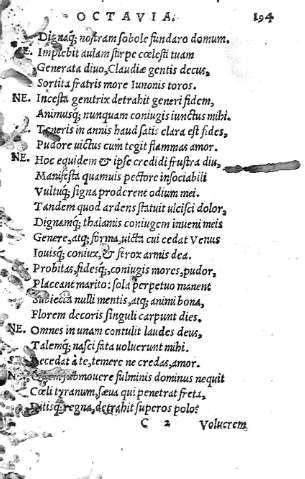 OCTAVIA. 194
Dignaq; nostram sobole fundaro domum.
Implebit aulam stirpe cœlesti tuam
Generata diuo, Claudiæ gentis decus,
Sortita fratris more Iunonis toros.
NE. Incesta genitrix detrahit generi fidem,
Animusq; nunquam coniugis iunctus mihi.
Teneris in annis haud satis clara est fides,
Pudore uictus cum tegit flammas amor.
NE. Hoc equidem & ipse credidi frustra diu,
Manifesta quamuis pectore insociabili
Vultuq; signa proderent odium mei.
Tandem quod ardens statuit ulcisci dolor,
Dignamq; thalamis coniugem inueni meis
Genere, atq; forma, uicta cui cedat Venus
Iouisq; coniux, & ferox armis dea.
Probitas, fidesq;, coniugis mores, pudor,
Placeant marito: sola perpetuo manent
Subiecta nulli mentis, atq; animi bona,
Florem decoris singuli carpunt dies.
NE. Omnes in unam contulit laudes deus,
Talemq; nasci fata uoluerunt mihi.
Recedat à te, temere ne credas, amor.
submouere fulminis dominus nequit
Cœli tyranum, sæua qui penetrat freta,
Ditisq; regna, detrahit superos polo?
C 2 Volucrem